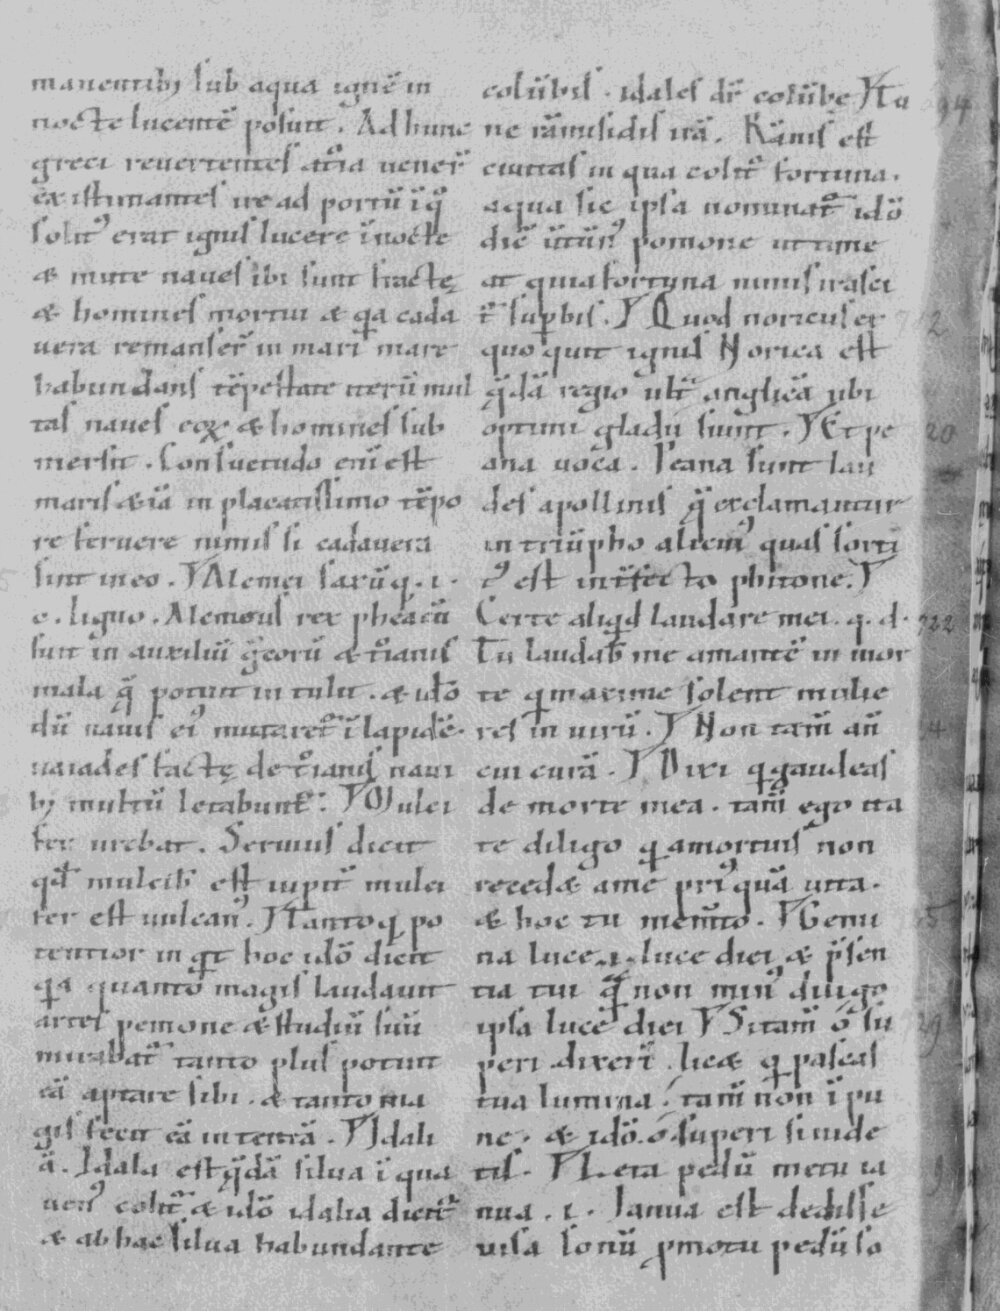 manentib; sub aqua ignē in
nocte lucentē posuit. Ad hunc
greci reuertentes at̄ria uener̄
existimantes ire ad portū ī q̄
solit᾿ erat ignis lucere ī nocte
& inuite naues ibi sunt fractę
& homines mortui & q̄a cada
uera remanser̄ in mari mare
habundans tēpestate iterū mul
tas naues eoꝝ & homines sub
mersit. Consuetudo enī est
maris &iā in placatissimo tēpo
re feruere nimis si cadauera
sint in eo. Alcinoi saxūq. i.
e. ligno. Alcinous rex pheacū
fuit in auxiliū grecorū & troianis
mala q̄ potuit intulit. & idō
dū nauis ei᾿ mutaret᾿ ī lapidē.
naiades factę de troianis naui
b; multū letabunt᾿. Mulci
fer urebat. Seruius dicit
qd̄ mulcib̄ est iupit̄ mulci
fer est uulcan᾿. Tantoq; po
tentior in q̄t hoc idō dicit
q̄a quanto magis laudauit
artes pomone & studiū suū
mirabat᾿ tanto plus potuit
eā aptare sibi. & tanto ma
gis fecit eā intentā. Idali
ā. Idala est q̄dā silua ī qua
uen᾿ colit᾿ & idō idalia dicit᾿
& ab hac silua habundante
colūbis. idales dr̄ colūbe Ra
ne rāmusidis irā. Rāmis est
ciuitas in qua colit᾿ fortuna.
aqua sic ipsa nominat᾿ idō
dic̄ uertūn᾿ pomone ut time
at quia fortuna nimis irasci
t᾿ supbis. Quod noricus ex
quoquit ignis Norica est
q̄dā regio ult᾿ anglicā ubi
optimi gladii fiunt. Et pe
ana uoca. Peana sunt lau
des apollinis q̄ exclamantur
in triūpho alicui᾿ quas sorti
t᾿ est interfecto phitone.
Certe aliqd laudare mei. q. d.
Tu laudab᾿ me amantē in mor
te q maxime solent mulie
res in uirū. Non tam̄ an̄
cui curā. Dixi q gaudeas
de morte mea. tam̄ ego ita
te diligo q a mortuis non
recedæ a me pri᾿ quā uita.
& hoc tu mem̄to. Gemi
na luce. i. luce diei & p̄sen
tia tui q̄ non min᾿ diligo
ipsa luce diei Si tam̄ ó su
peri dixerī. licæ q pascas
tua lumina. tam̄ non ī pu
ne. & idō. ó. superi si uide
tis. Icta pedū motu ia
nua. i. Ianua est dedisse
uisa sonū p motu pedū so